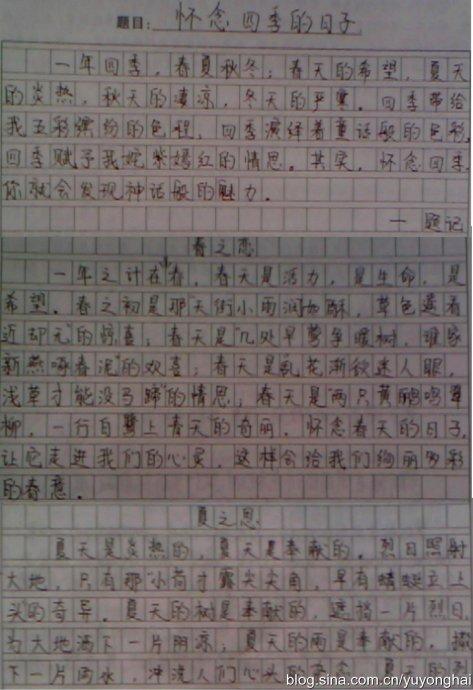 题目: 怀念四季的日子
一年四季，春夏秋冬；春天的希望，夏天
的炎热，秋天的凄凉，冬天的严寒。四季带给
我五彩缤纷的色程，四季演绎着童话般的色彩，
四季赋予我姹紫嫣红的情思。其实，怀念四季，
你就会发现神话般的魅力。
一 题记
春之恋
一年之计在春，春天是活力，是生命，是
希望。春之初是那天街小雨润如酥，草色遥看
近却无"的惊喜；春天是"几处早莺争暖树，谁家
新燕啄春泥"的欢喜；春天是乱花渐欲迷人眼，
浅草才能没马蹄"的情思；春天是"两只黄鹂鸣翠
柳，一行白鹭上春天"的奇丽。怀念春天的日子，
让它走进我们的心灵，这样会给我们绚丽多彩
的春意。
夏之思
夏天是炎热的，夏天是奉献的。烈日照射
大地，只有那"小荷才露尖尖角，早有蜻蜓立上
头"的奇异。夏天的树是奉献的，遮挡一片烈日，
为大地洒下一片阴凉；夏天的雨是奉献的，
下一片雨水，冲洗人们心头的 夏天的
blog.sina.com.cn/yuyonghai